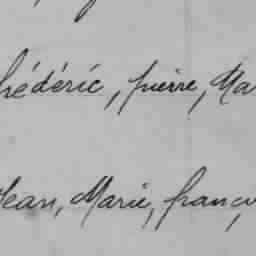 frédéric, pierre, Ma
Jean, Marie, franç